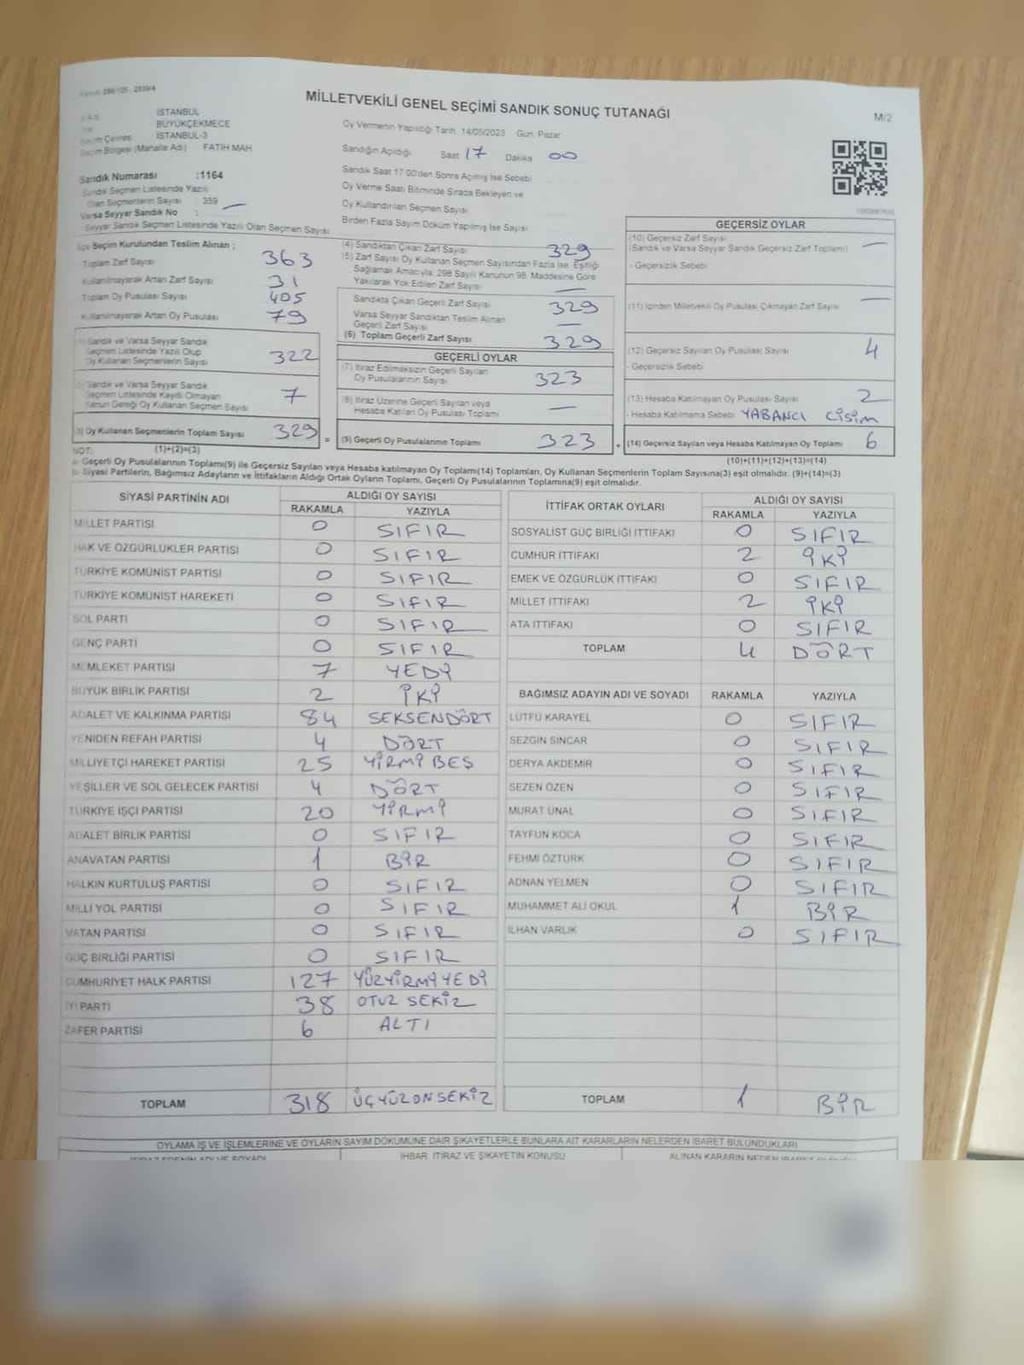 MİLLETVEKİLİ GENEL SEÇİMİ SANDIK SONUÇ TUTANAĞI
M/2
İSTANBUL
BÜYÜKÇEKMECE
İSTANBUL-3
Seçim Bölgesi (Mahalle Adı) FATİH MAH
Oy Vermenin Yapıldığı Tarih: 14/05/2023 Gün: Pazar
Sandığın Açıldığı Saat 17 Dakika 00
Sandık Saat 17:00'den Sonra Açılmış İse Sebebi
Oy Verme Saati Bitiminde Sırada Bekleyen ve
Oy Kullandırılan Seçmen Sayısı
Birden Fazla Sayım Döküm Yapılmış İse Sayısı
Sandık Numarası :1164
Sandık Seçmen Listesinde Yazılı
Olan Seçmenlerin Sayısı : 359
Varsa Seyyar Sandık No :
Seyyar Sandık Seçmen Listesinde Yazılı Olan Seçmen Sayısı
İlçe Seçim Kurulundan Teslim Alınan ;
Toplam Zarf Sayısı 363
Kullanılmayarak Artan Zarf Sayısı 31
Toplam Oy Pusulası Sayısı 405
Kullanılmayarak Artan Oy Pusulası 79
Sandık ve Varsa Seyyar Sandık
Seçmen Listesinde Yazılı Olup
Oy Kullanan Seçmenlerin Sayısı 322
Sandık ve Varsa Seyyar Sandık
Seçmen Listesinde Kayıtlı Olmayan
Kanun Gereği Oy Kullanan Seçmen Sayısı 7
(3) Oy Kullanan Seçmenlerin Toplam Sayısı 329
(1)+(2)=(3)
(4) Sandıktan Çıkan Zarf Sayısı 329
(5) Zarf Sayısı Oy Kullanan Seçmen Sayısından Fazla İse, Eşitliği
Sağlamak Amacıyla, 298 Sayılı Kanunun 98. Maddesine Göre
Yakılarak Yok Edilen Zarf Sayısı —
Sandıkta Çıkan Geçerli Zarf Sayısı 329
Varsa Seyyar Sandıktan Teslim Alınan
Geçerli Zarf Sayısı —
(6) Toplam Geçerli Zarf Sayısı 329
GEÇERLİ OYLAR
(7) İtiraz Edilmeksizin Geçerli Sayılan
Oy Pusulalarının Sayısı 323
(8) İtiraz Üzerine Geçerli Sayılan veya
Hesaba Katılan Oy Pusulası Toplamı —
(9) Geçerli Oy Pusulalarının Toplamı 323
GEÇERSİZ OYLAR
(10) Geçersiz Zarf Sayısı —
(Sandık ve Varsa Seyyar Sandık Geçersiz Zarf Toplamı)
- Geçersizlik Sebebi
(11) İçinden Milletvekili Oy Pusulası Çıkmayan Zarf Sayısı —
(12) Geçersiz Sayılan Oy Pusulası Sayısı 4
- Geçersizlik Sebebi
(13) Hesaba Katılmayan Oy Pusulası Sayısı 2
- Hesaba Katılmama Sebebi YABANCI CİSİM
(14) Geçersiz Sayılan veya Hesaba Katılmayan Oy Toplamı 6
(10)+(11)+(12)+(13)=(14)
NOT:
a- Geçerli Oy Pusulalarının Toplamı(9) ile Geçersiz Sayılan veya Hesaba katılmayan Oy Toplamı(14) Toplamları, Oy Kullanan Seçmenlerin Toplam Sayısına(3) eşit olmalıdır. (9)+(14)=(3)
b- Siyasi Partilerin, Bağımsız Adayların ve İttifakların Aldığı Ortak Oyların Toplamı, Geçerli Oy Pusulalarının Toplamına(9) eşit olmalıdır.
SİYASİ PARTİNİN ADI ALDIĞI OY SAYISI
RAKAMLA YAZIYLA
MİLLET PARTİSİ 0 SIFIR
HAK VE ÖZGÜRLÜKLER PARTİSİ 0 SIFIR
TÜRKİYE KOMÜNİST PARTİSİ 0 SIFIR
TÜRKİYE KOMÜNİST HAREKETİ 0 SIFIR
SOL PARTİ 0 SIFIR
GENÇ PARTİ 0 SIFIR
MEMLEKET PARTİSİ 7 YEDİ
BÜYÜK BİRLİK PARTİSİ 2 İKİ
ADALET VE KALKINMA PARTİSİ 84 SEKSENDÖRT
YENİDEN REFAH PARTİSİ 4 DÖRT
MİLLİYETÇİ HAREKET PARTİSİ 25 YİRMİ BEŞ
YEŞİLLER VE SOL GELECEK PARTİSİ 4 DÖRT
TÜRKİYE İŞÇİ PARTİSİ 20 YİRMİ
ADALET BİRLİK PARTİSİ 0 SIFIR
ANAVATAN PARTİSİ 1 BİR
HALKIN KURTULUŞ PARTİSİ 0 SIFIR
MİLLİ YOL PARTİSİ 0 SIFIR
VATAN PARTİSİ 0 SIFIR
GÜÇ BİRLİĞİ PARTİSİ 0 SIFIR
CUMHURİYET HALK PARTİSİ 127 YÜZYİRMİYEDİ
İYİ PARTİ 38 OTUZ SEKİZ
ZAFER PARTİSİ 6 ALTI
TOPLAM 318 ÜÇYÜZONSEKİZ
İTTİFAK ORTAK OYLARI ALDIĞI OY SAYISI
RAKAMLA YAZIYLA
SOSYALİST GÜÇ BİRLİĞİ İTTİFAKI 0 SIFIR
CUMHUR İTTİFAKI 2 İKİ
EMEK VE ÖZGÜRLÜK İTTİFAKI 0 SIFIR
MİLLET İTTİFAKI 2 İKİ
ATA İTTİFAKI 0 SIFIR
TOPLAM 4 DÖRT
BAĞIMSIZ ADAYIN ADI VE SOYADI RAKAMLA YAZIYLA
LÜTFÜ KARAYEL 0 SIFIR
SEZGİN SİNCAR 0 SIFIR
DERYA AKDEMİR 0 SIFIR
SEZEN ÖZEN 0 SIFIR
MURAT ÜNAL 0 SIFIR
TAYFUN KOCA 0 SIFIR
FEHMİ ÖZTÜRK 0 SIFIR
ADNAN YELMEN 0 SIFIR
MUHAMMET ALİ OKUL 1 BİR
İLHAN VARLIK 0 SIFIR
TOPLAM 1 BİR
OYLAMA İŞ VE İŞLEMLERİNE VE OYLARIN SAYIM DÖKÜMÜNE DAİR ŞİKAYETLERLE BUNLARA AİT KARARLARIN NELERDEN İBARET BULUNDUKLARI
İHBAR, İTİRAZ VE ŞİKAYETİN KONUSU